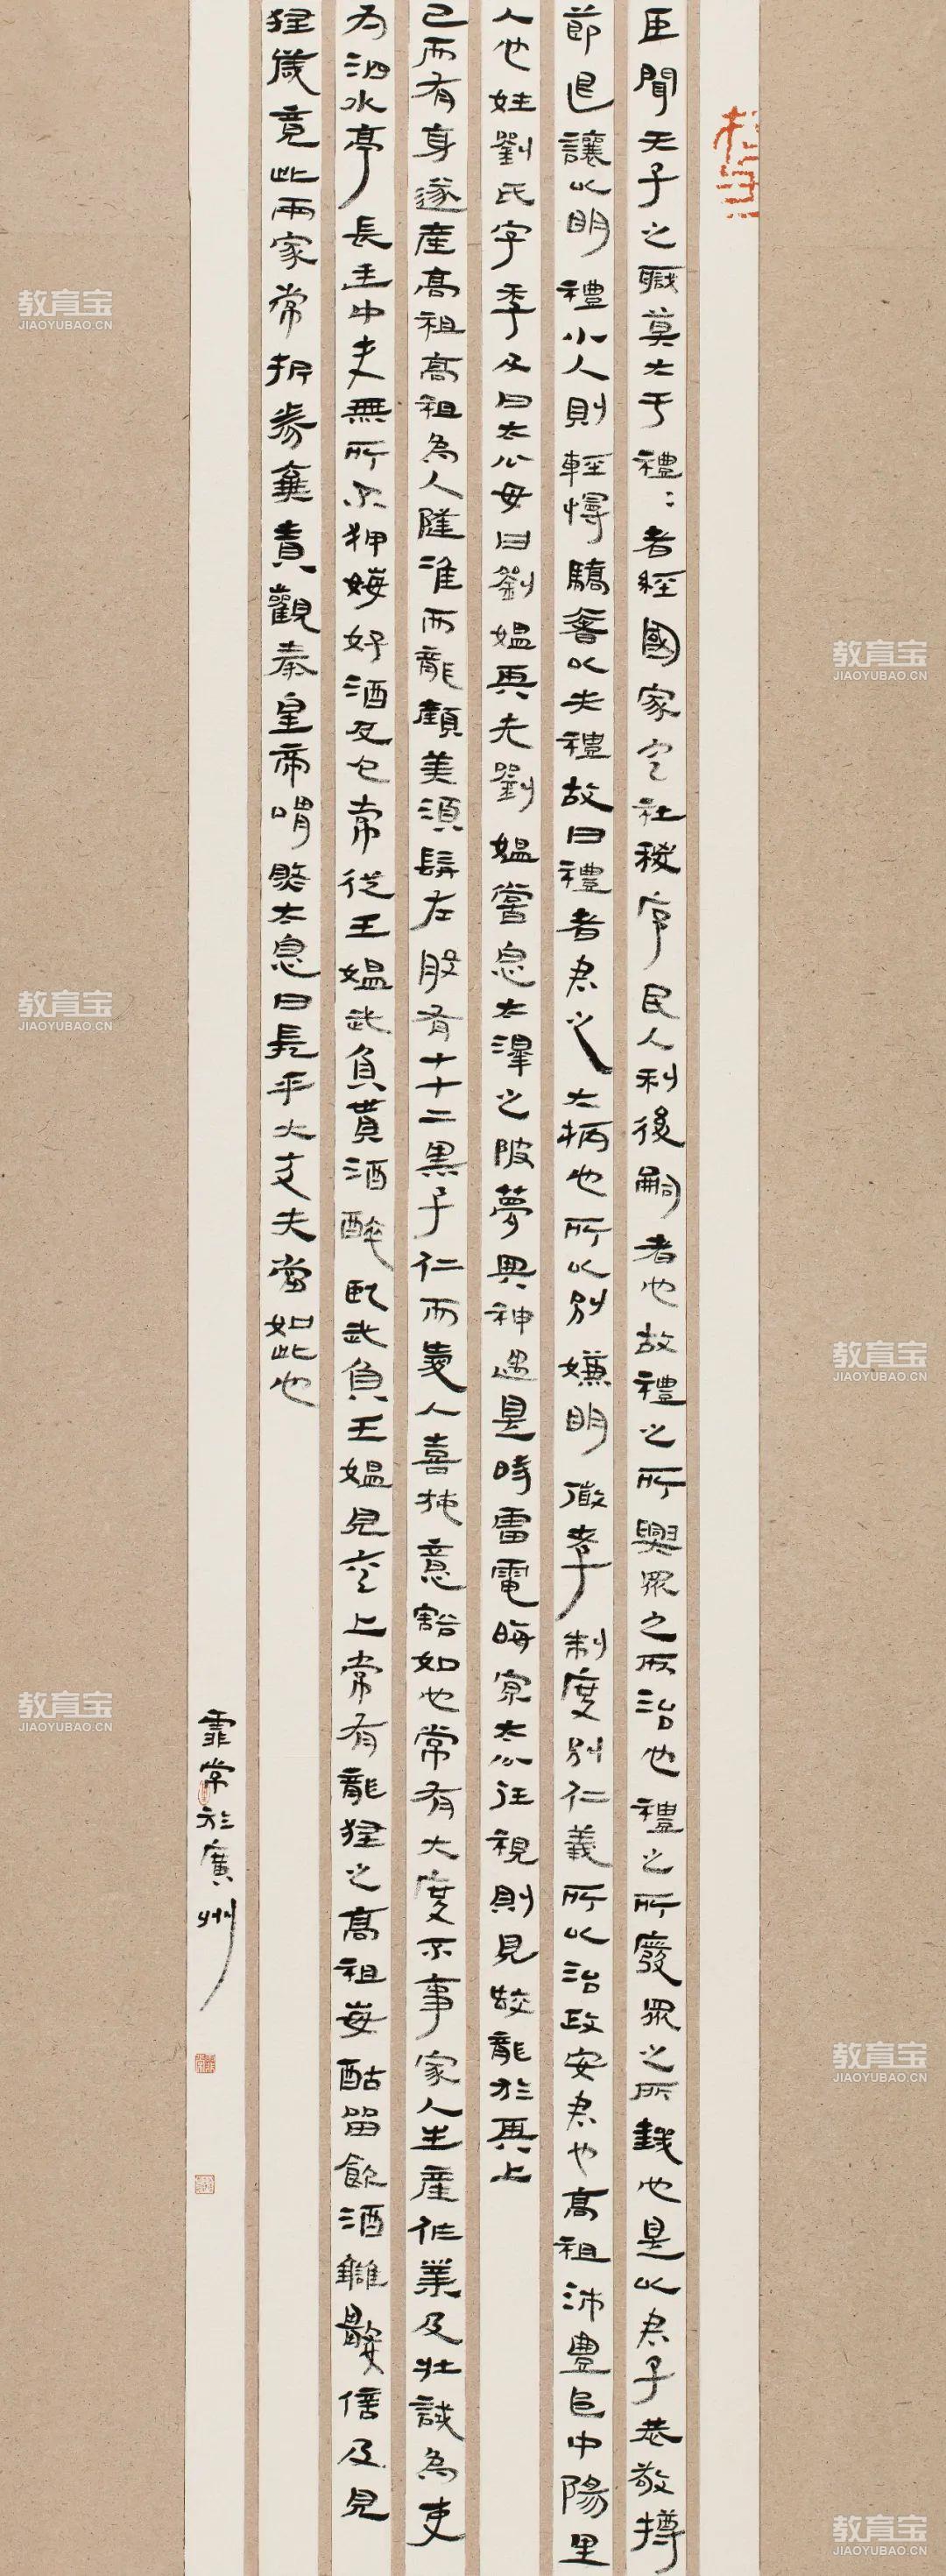 臣聞天子之職莫大于禮:者經國家定社稷序民人利後嗣者也故禮之所興眾之所治也禮之所廢眾之所亂也是以君子恭敬撙
節退讓以明禮小人則輕慢驕奢以失禮故曰禮者君之大柄也所以別嫌明微孝制度別仁義所以治政安君也高祖沛豐邑中陽里
人也姓劉氏字季父曰太公母曰劉媼其先劉媼嘗息大澤之陂夢與神遇是時雷電晦冥太公往視則見蛟龍於其上
已而有身遂產高祖高祖為人隆準而龍顏美須髯左股有七十二黑子仁而愛人喜施意豁如也常有大度不事家人生產作業及壯試為吏
為泗水亭長廷中吏無所不狎侮好酒及色常從王媼武負貰酒醉臥武負王媼見其上常有龍怪之高祖每酤留飲酒讎數倍及見
怪歲竟此兩家常折券棄責觀秦皇帝喟然太息曰嗟乎大丈夫當如此也
霏常於廣州
教育宝
JIAOYUBAO.CN
教育宝
JIAOYUBAO.CN
教育宝
JIAOYUBAO.CN
教育宝
JIAOYUBAO.CN
教育宝
JIAOYUBAO.CN
教育宝
JIAOYUBAO.CN
教育宝
JIAOYUBAO.CN